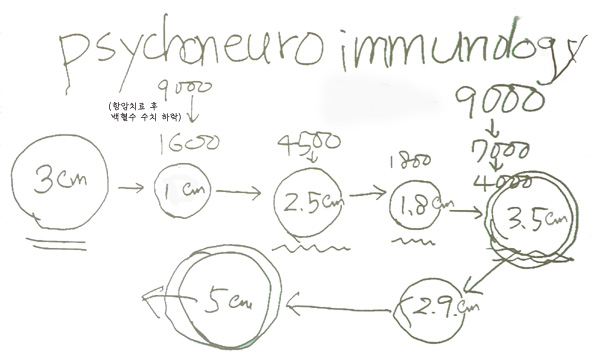 psychoneuro immunology
9000
(항암치료 후
백혈수 수치 하락)
1600
4500
1800
9000
7000
4000
3cm
1cm
2.5cm
1.8cm
3.5cm
5cm
2.9.cm